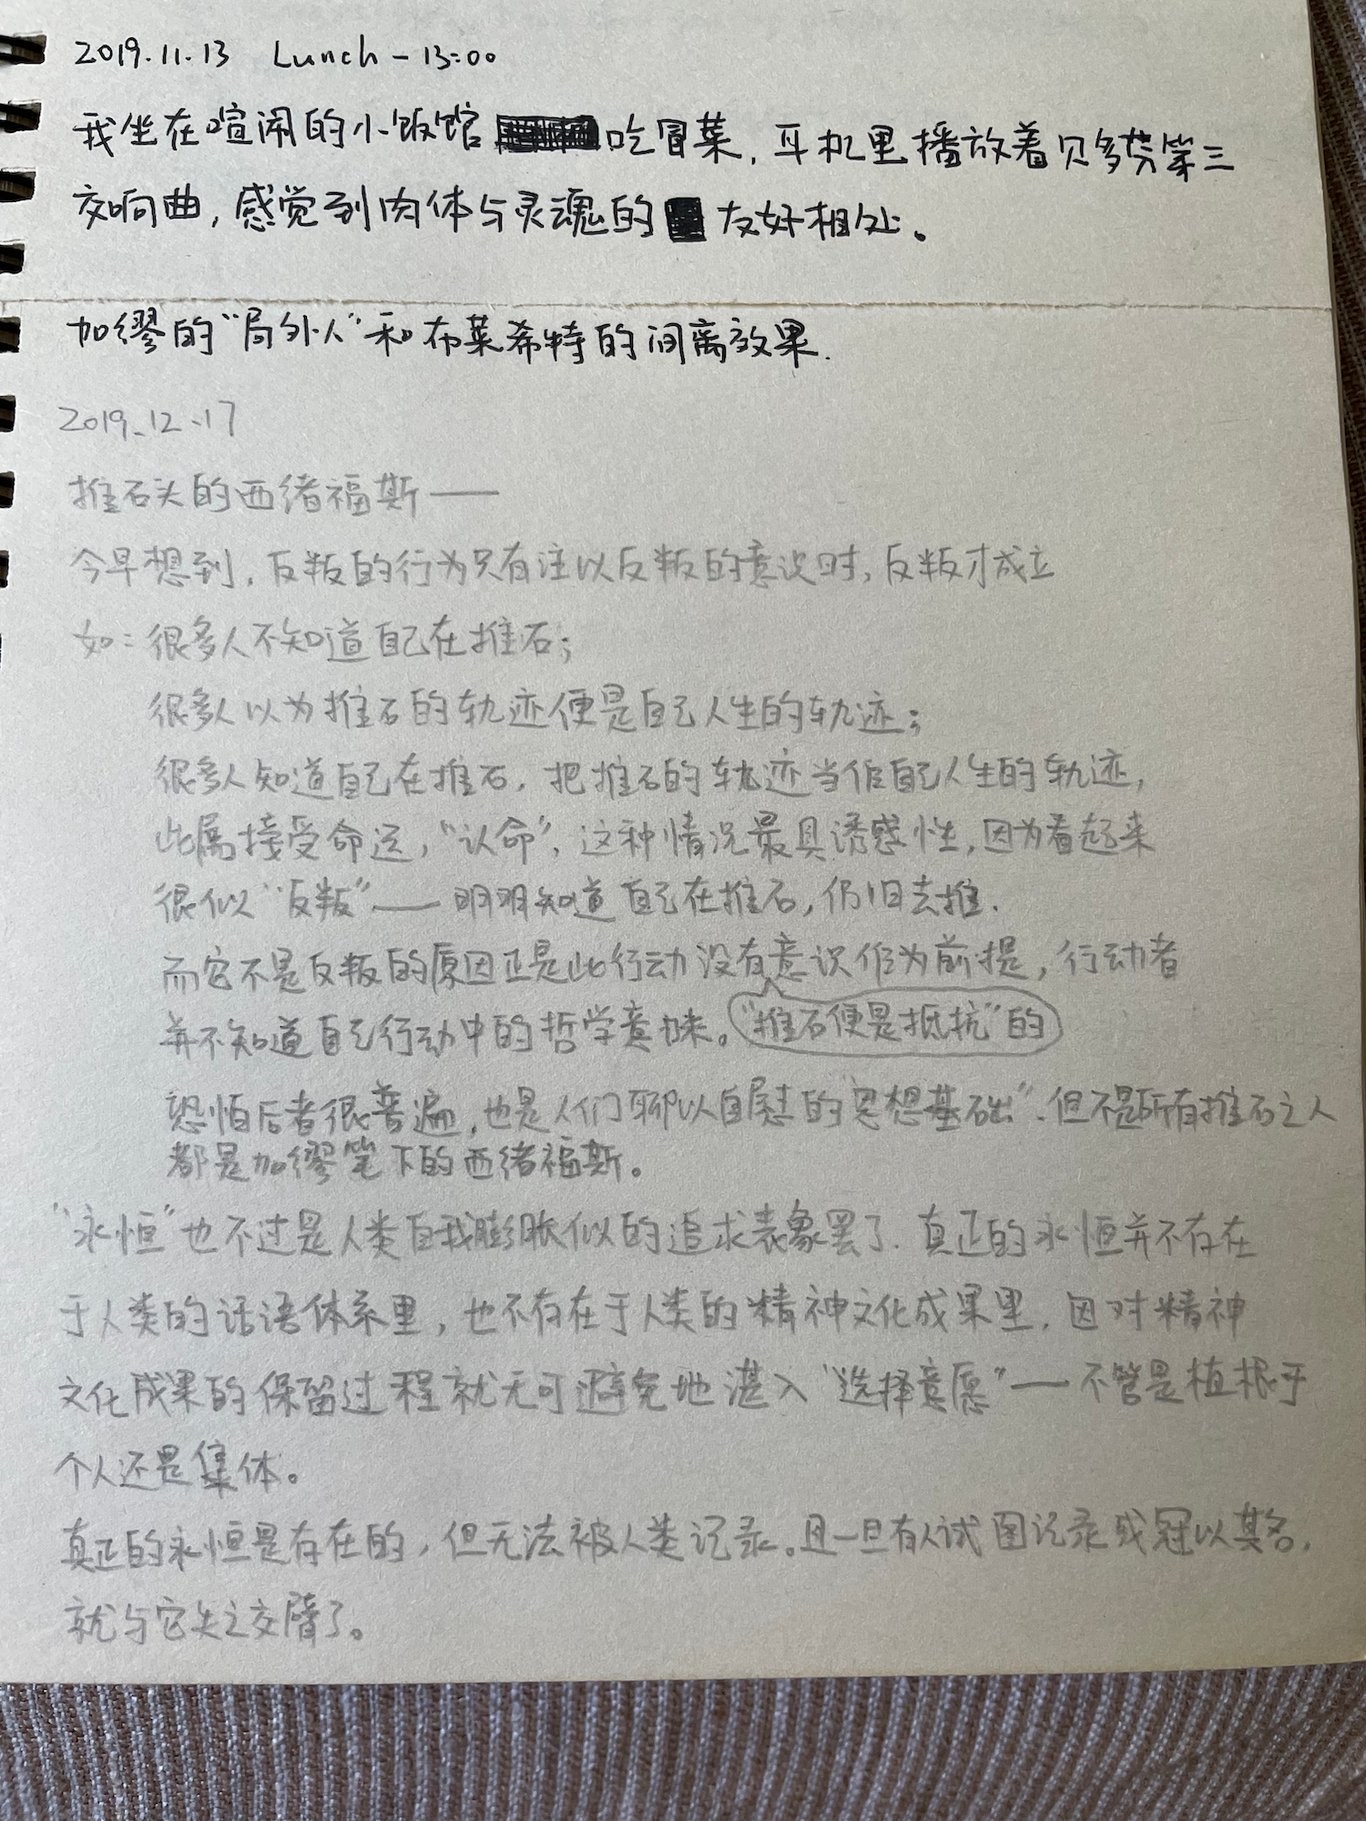 2019.11.13 Lunch - 13:00
我坐在喧闹的小饭馆 吃冒菜，耳机里播放着贝多芬第三
交响曲，感觉到肉体与灵魂的 友好相处。
加缪的“局外人”和布莱希特的间离效果.
2019.12.17
推石头的西绪福斯——
今早想到，反叛的行为只有注以反叛的意识时，反叛才成立
如：很多人不知道自己在推石；
很多人以为推石的轨迹便是自己人生的轨迹；
很多人知道自己在推石，把推石的轨迹当作自己人生的轨迹，
此属接受命运，“认命”，这种情况最具诱惑性，因为看起来
很似“反叛”——明明知道自己在推石，仍旧去推.
而它不是反叛的原因正是此行动没有意识作为前提，行动者
并不知道自己行动中的哲学意味。“推石便是抵抗”的
恐怕后者很普遍，也是人们聊以自慰的“思想基础”.但不是所有推石之人
都是加缪笔下的西绪福斯。
“永恒”也不过是人类自我膨胀似的追求表象罢了.真正的永恒并不存在
于人类的话语体系里，也不存在于人类的精神文化成果里，因对精神
文化成果的保留过程就无可避免地湛入“选择意愿”——不管是植根于
个人还是集体。
真正的永恒是存在的，但无法被人类记录。且一旦有人试图记录或冠以其名，
就与它失之交臂了。